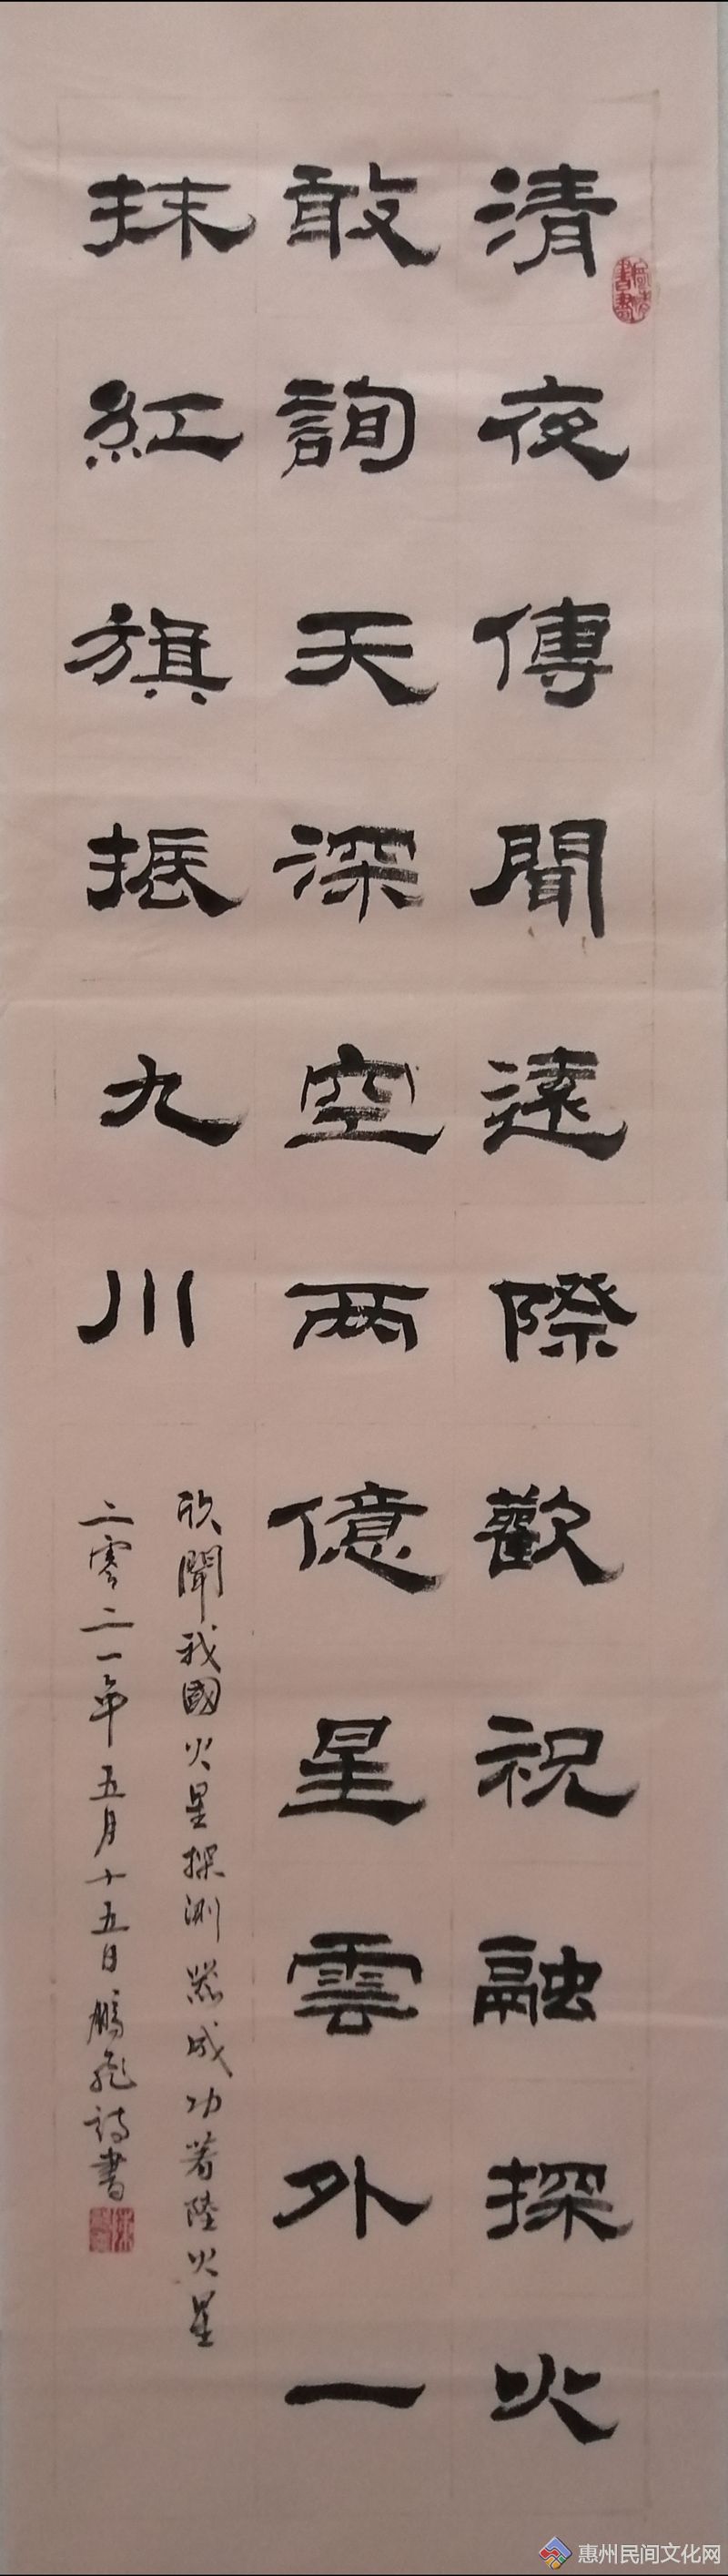 清夜傳聞遠際歡祝融探火
敢詢天深空两億星雲外一
抹紅旗振九川
欣聞我國火星探测器成功著陸火星
二零二一年五月十五日鵬飛詩書
惠州民间文化网